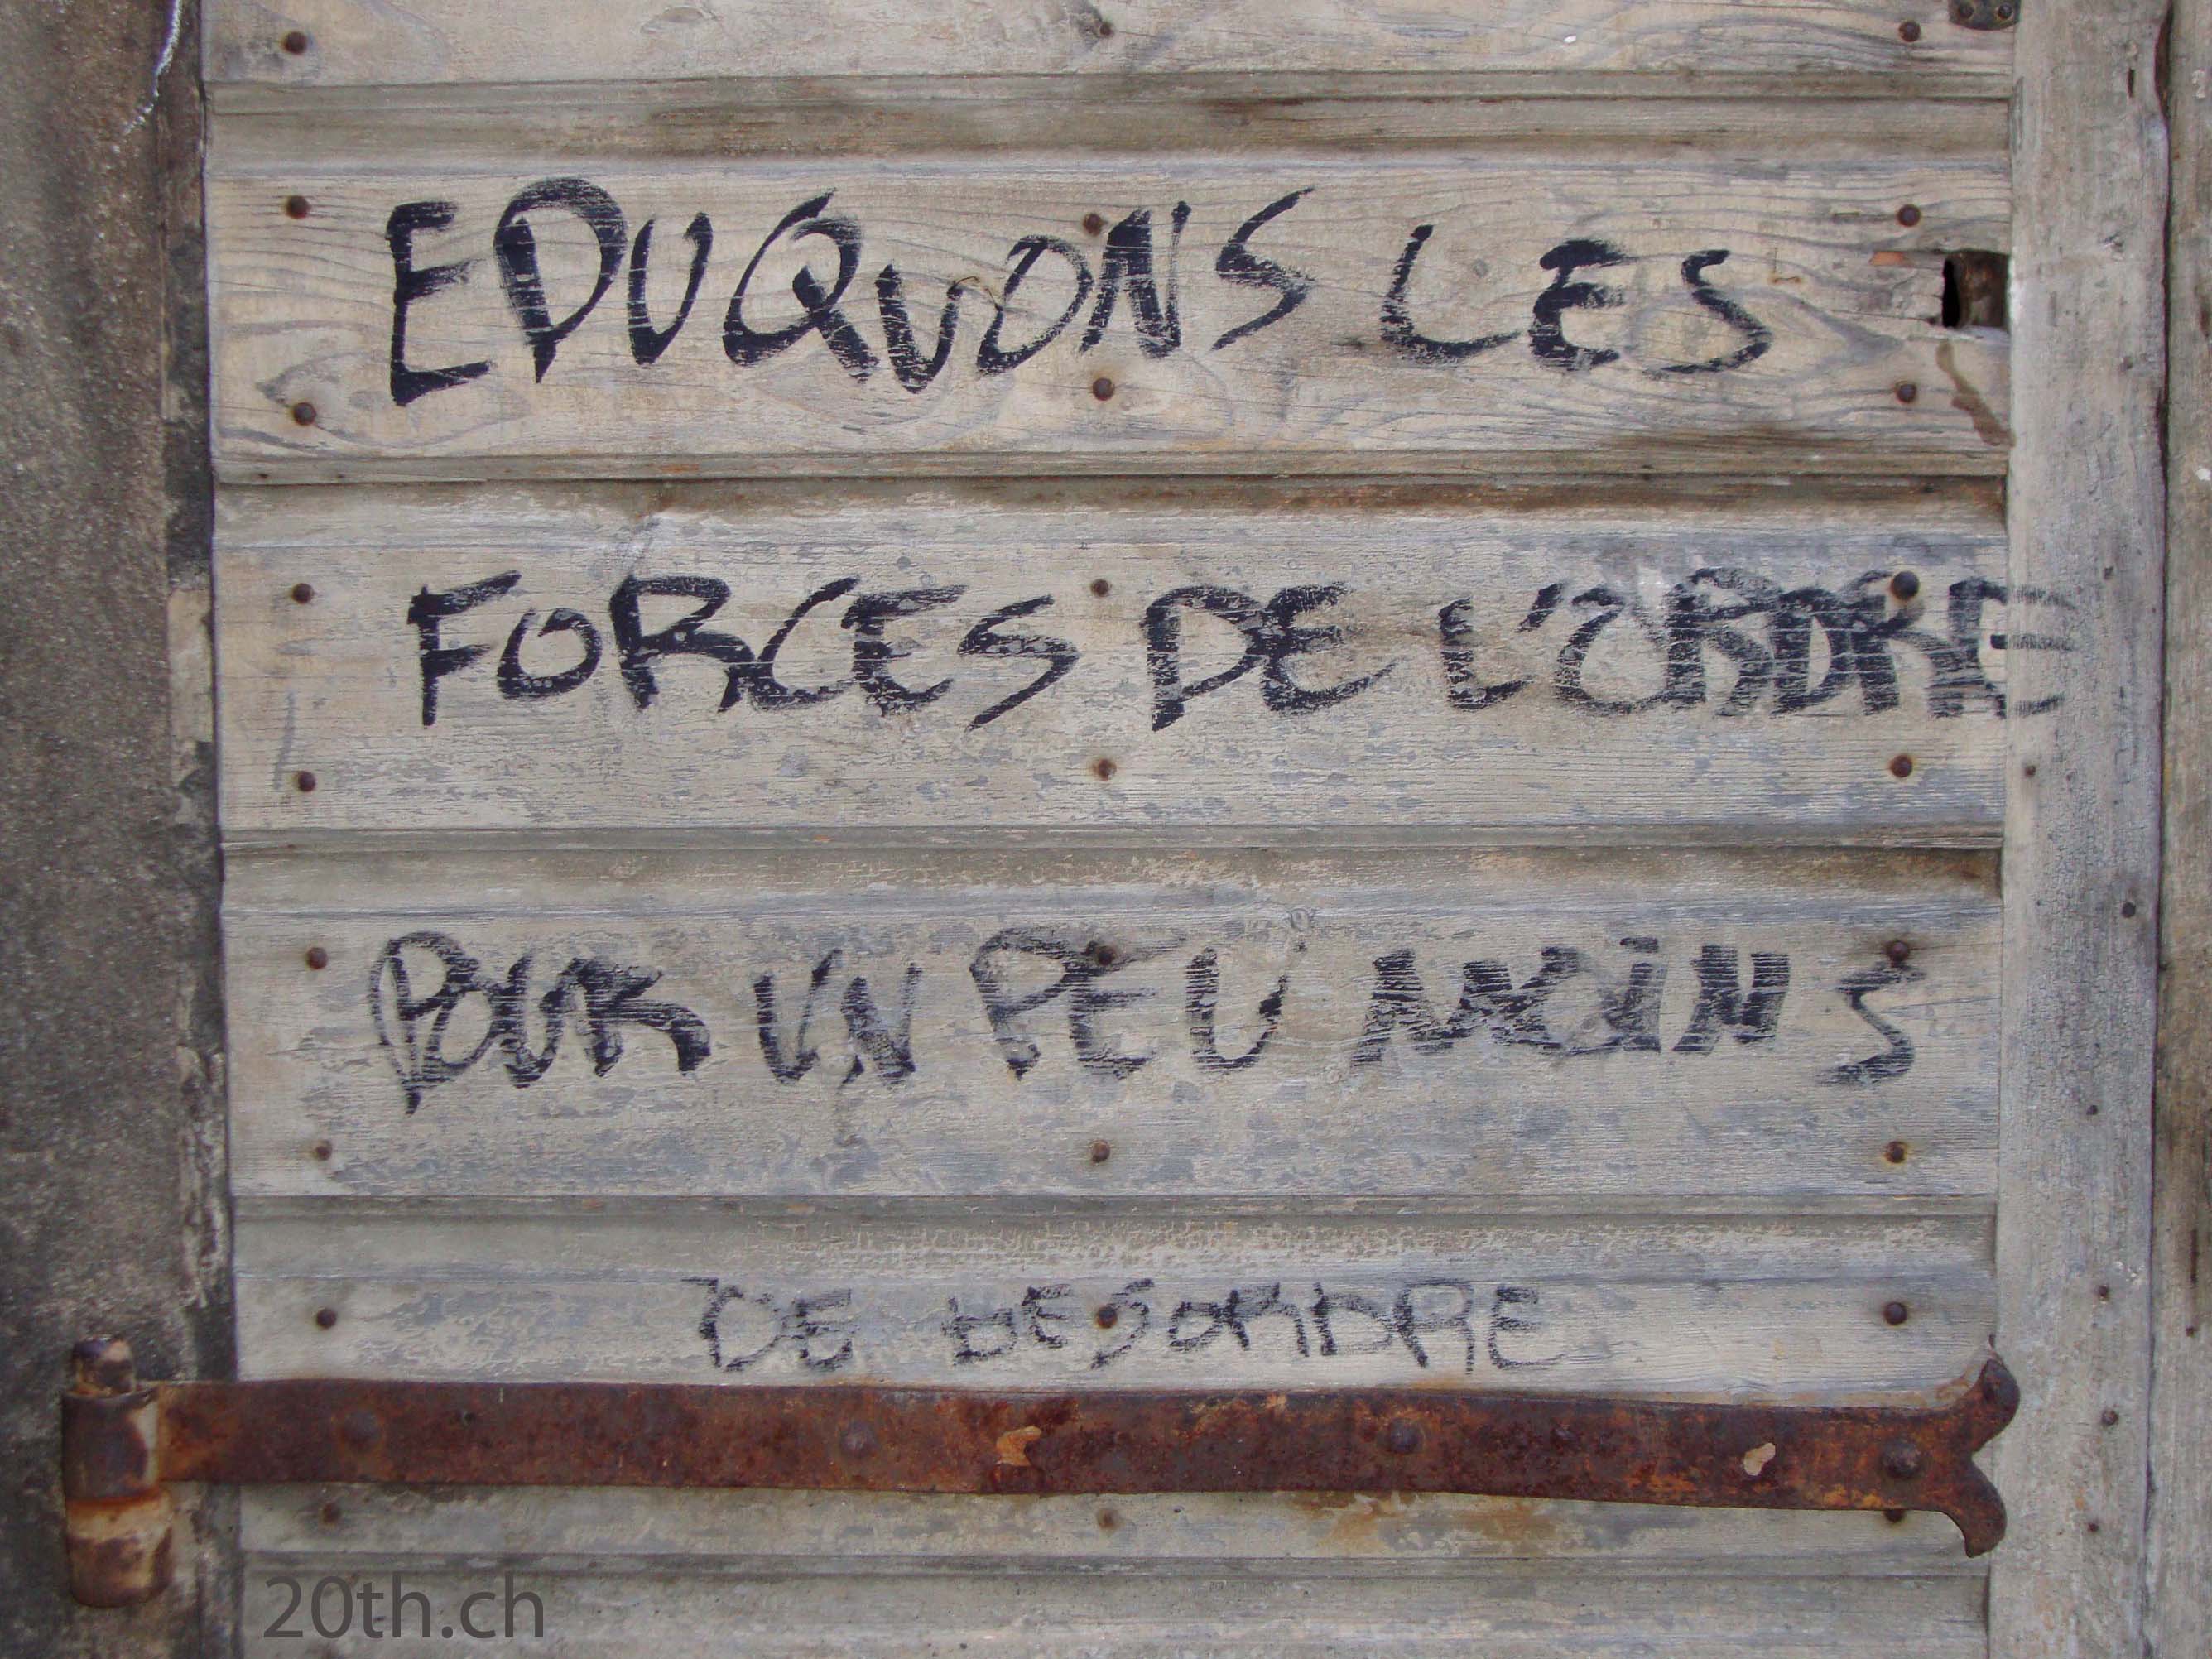 EDUQUONS LES
FORCES DE L'ORDRE
POUR UN PEU MOiNS
DE DESORDRE
20th.ch